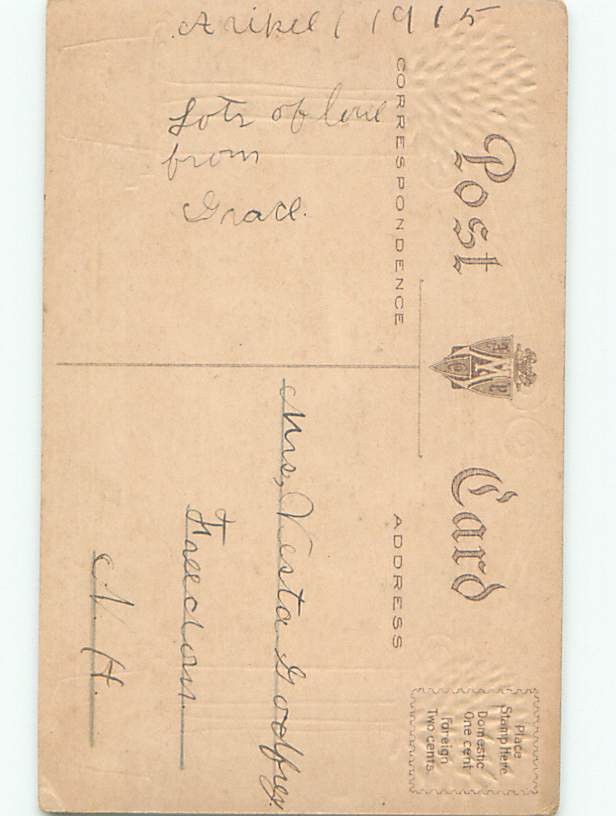 Post Card
CORRESPONDENCE
ADDRESS
Place
Stamp Here
Domestic
One cent
Foreign
Two cents.
April 1 1915
Lots of love
from
Grace.
Mrs, Vesta Godfrey
Freedom.
N. H.